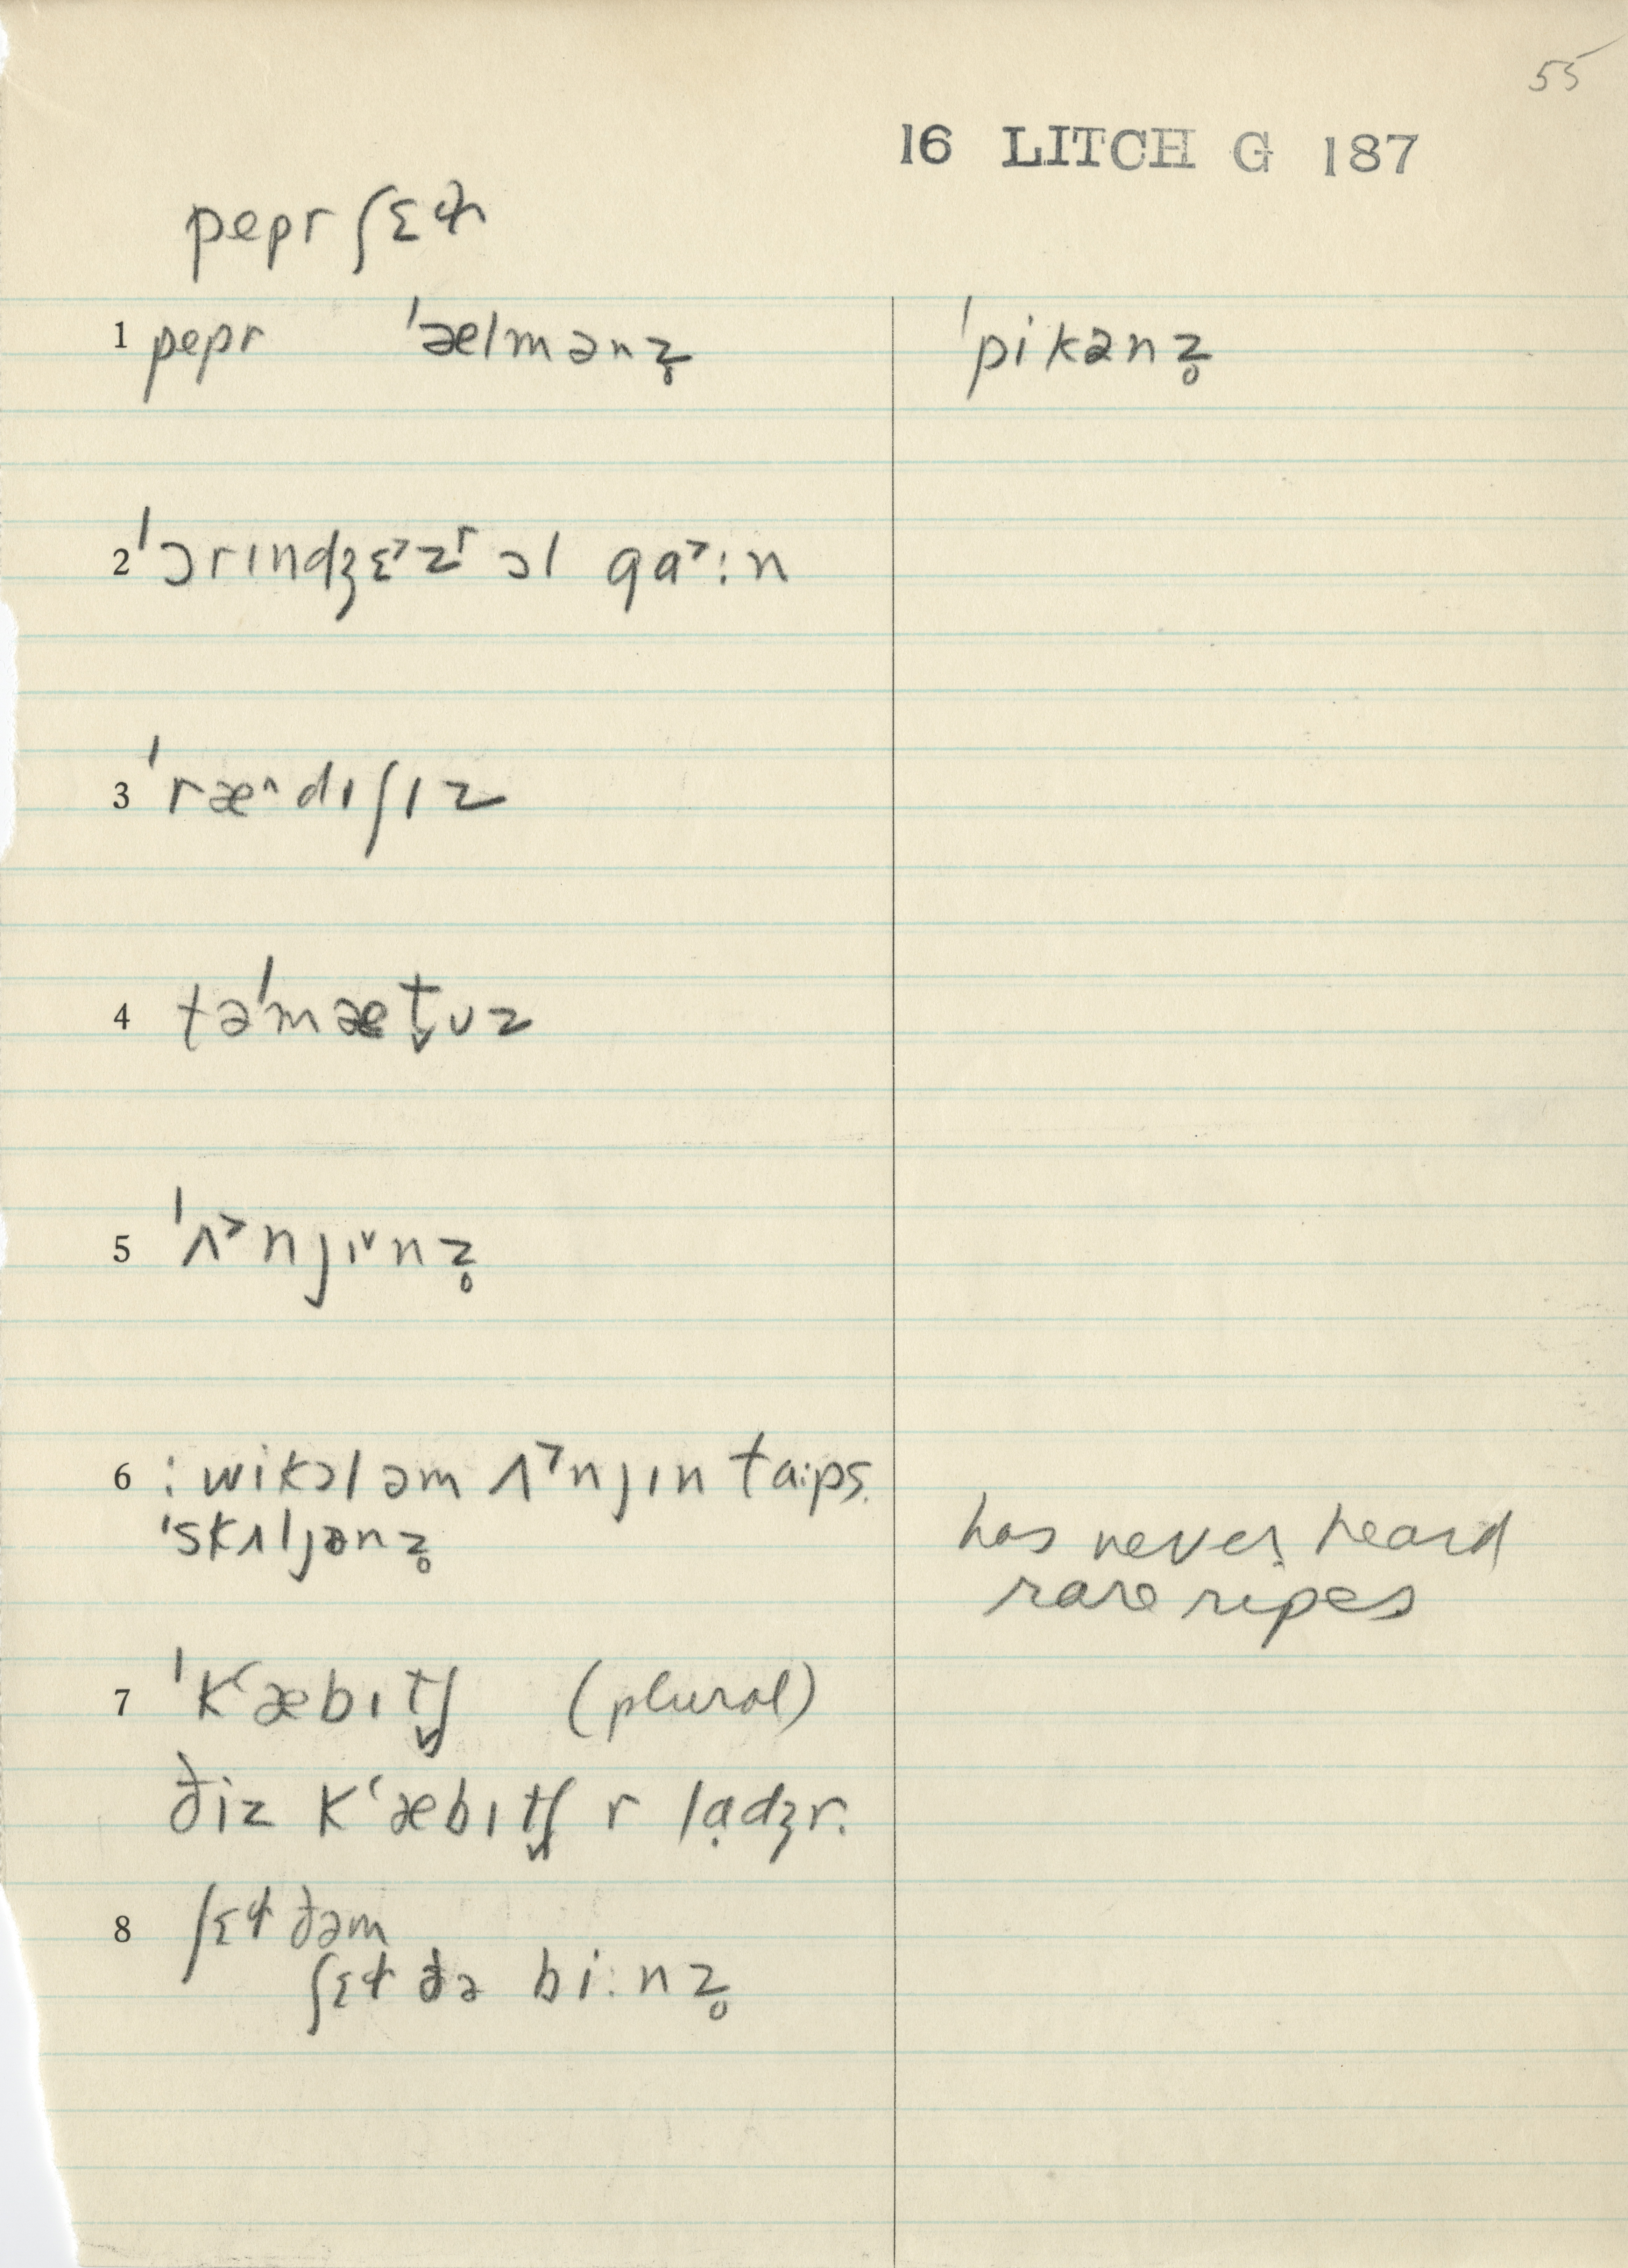 55
16 LITCH G 187
pepr ʃɛɫ
1 pepr ˈælmənz̥ ˈpikənz̥
2 ˈɔrɪndʒɛ˃z ɔl gɑ˃:n
3 ˈræ^dɪʃɪz
4 təˈmæt̬ʊz
5 ˈʌ˃njɪ˅nz̥
6 : wi kɔl əm ʌ˃njɪn ta:ps.
ˈskʌljənz̥ has never heard
rare ripes
7 ˈkʻæbɪt̬ʃ (plural)
ðiz kʻæbɪt̬ʃ r lạdʒr.
8 ʃɛɫ ðəm
ʃɛɫ ðə bi:nz̥